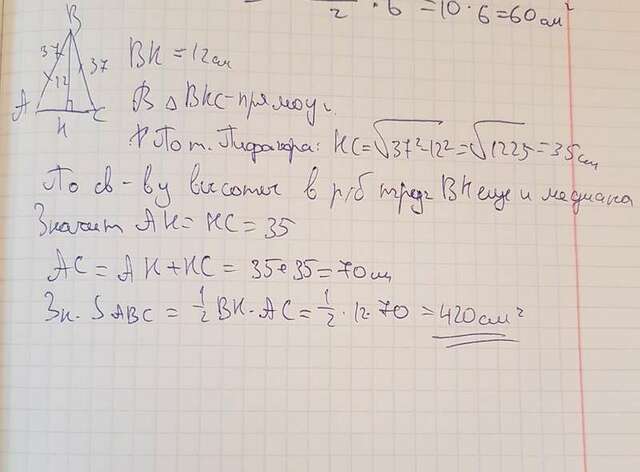 2 · 6 = 10 · 6 = 60 см²
B
37 37
12
A C
K
BK = 12 см
В △ BKC - прямоуг.
По т. Пифагора: KC = √37²-12² = √1225 = 35 см
По св-ву высоты в р/б треуг BK еще и медиана
Значит AK = KC = 35
AC = AK + KC = 35 + 35 = 70 см
Зн. S ABC = 1/2 BK · AC = 1/2 · 12 · 70 = 420 см²